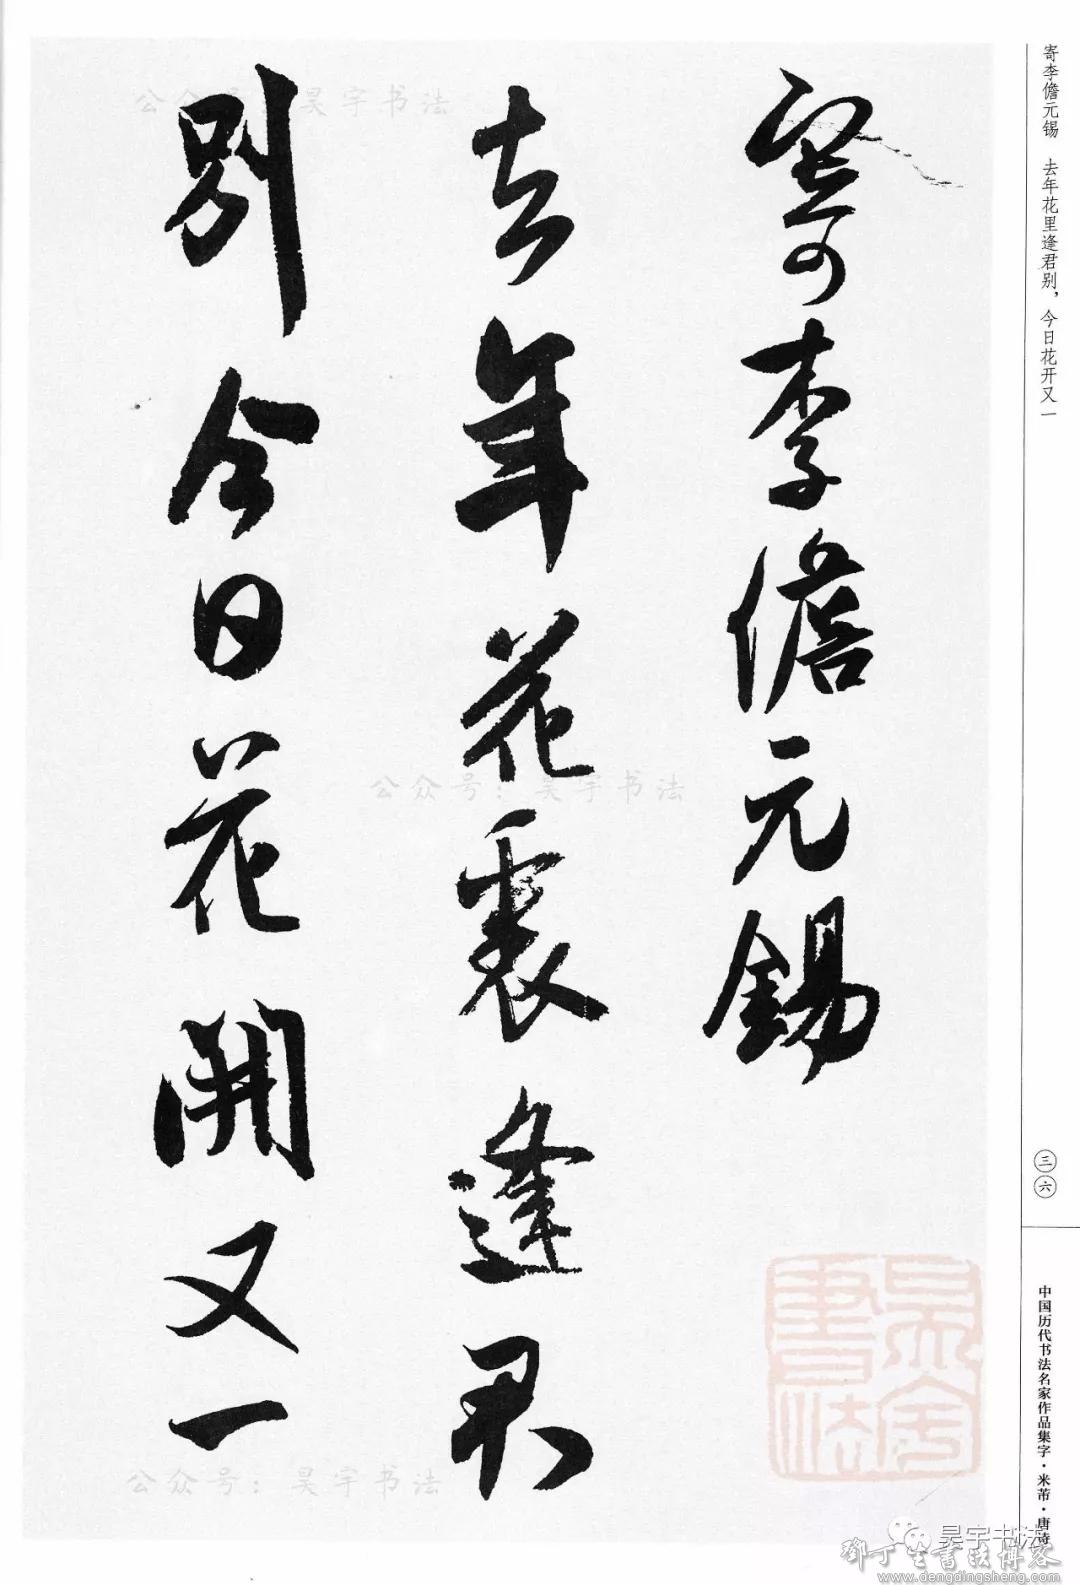 寄李儋元锡　去年花里逢君别，今日花开又一
寄李儋元錫
去年花裏逢君
別今日花開又一
三六
中国历代书法名家作品集字·米芾·唐诗
公众号：昊宇书法
公众号：昊宇书法
公众号：昊宇书法
昊宇書法
昊宇书法
鄧丁生書法博客
www.dengdingsheng.com